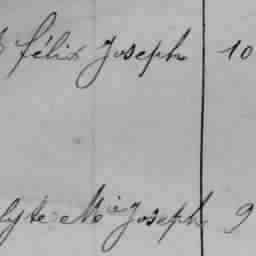 félix Joseph 10
lyte Mie Joseph 9